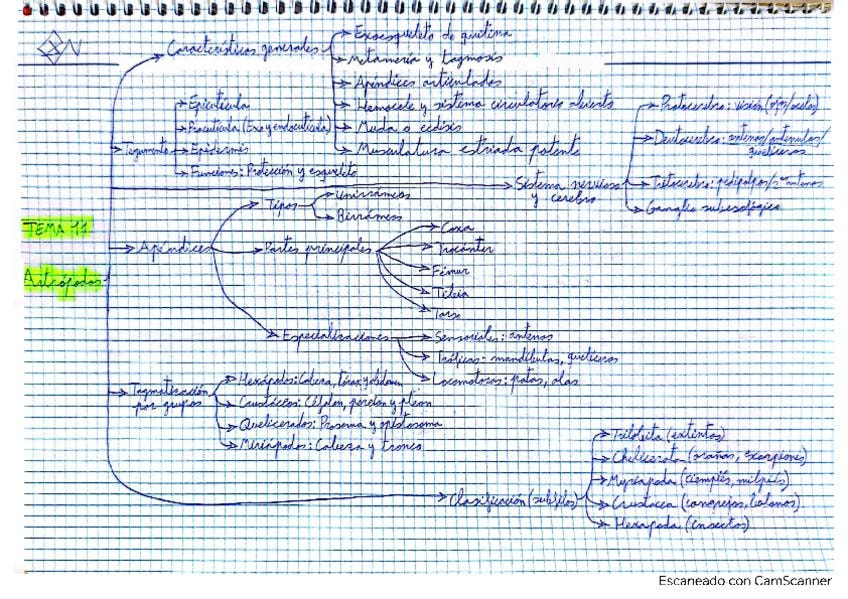 Características generales
Exoesqueleto de quitina
Metamería y tagmosis
Apéndices articulados
Hemocele y sistema circulatorio abierto
Muda o ecdisis
Musculatura estriada potente
Tegumento
Epicutícula
Procutícula (Exo y endocutícula)
Epidermis
Funciones: Protección y esqueleto
Sistema nervioso
y cerebro
Protocerebro: visión (ojos/ocelos)
Deutocerebro: antenas/anténulas/
quelíceros
Tritocerebro: pedipalpos/2ª antenas
Ganglio subesofágico
TEMA 11
Artrópodos
Apéndices
Tipos
Unirrámeos
Birrámeos
Partes principales
Coxa
Trocánter
Fémur
Tibia
Tarso
Especializaciones
Sensoriales: antenas
Tróficas- mandíbulas, quelíceros
Locomotoras: patas, alas
Tagmatización
por grupos
Hexápodos: Cabeza, tórax y abdomen
Crustáceos: Céfalon, pereion y pleon
Quelicerados: Prosoma y opistosoma
Miriápodos: Cabeza y tronco
Clasificación (subfilos)
Trilobita (extintos)
Chelicerata (arañas, escorpiones)
Myriapoda (ciempiés, milpiés)
Crustacea (cangrejos, balanos)
Hexapoda (insectos)
Escaneado con CamScanner